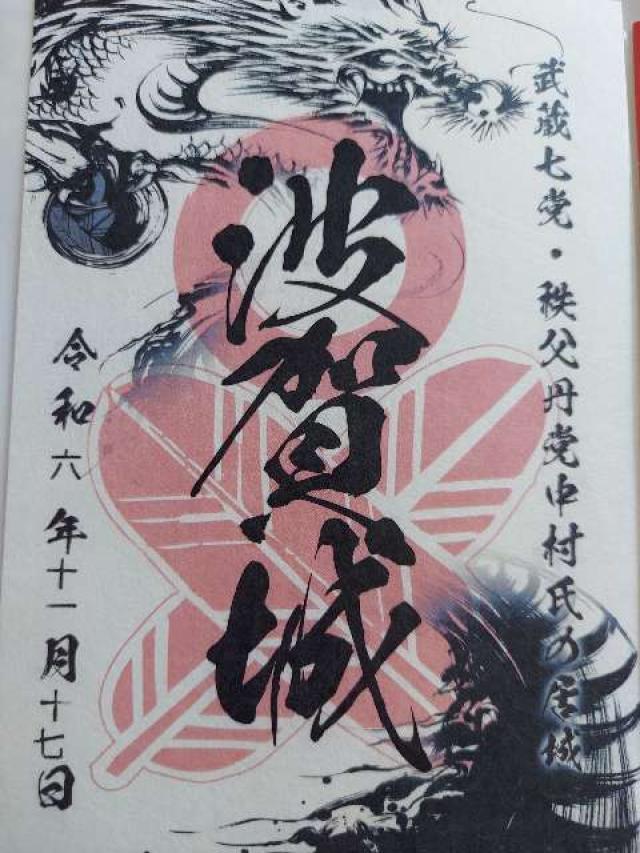 武蔵七党・秩父丹党中村氏の居城
波賀城
令和六年十一月十七日